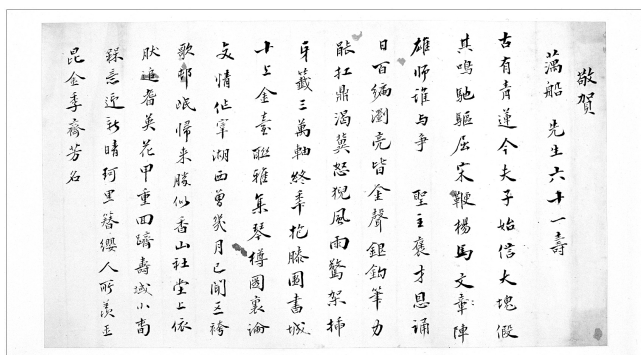 敬賀
蕅船 先生六十一壽
古有青蓮今夫子始信大塊假
其鳴馳驅屈宋鞭楊馬文章陣
雄師誰与爭 聖主褒才恩誦
日百編瀏亮皆金聲銀鉤筆力
能扛鼎渴驥怒猊風雨驚架揷
牙籤三萬軸終年抱膝圖書城
十上金臺聯雅集琴樽園裏論
文情作宰湖西曾幾月已聞五袴
歌邨氓歸来勝似香山社堂上依
肰追耆英花甲重回躋壽域小春
槑意迎新晴珂里簪纓人所羨玉
昆金季齊芳名